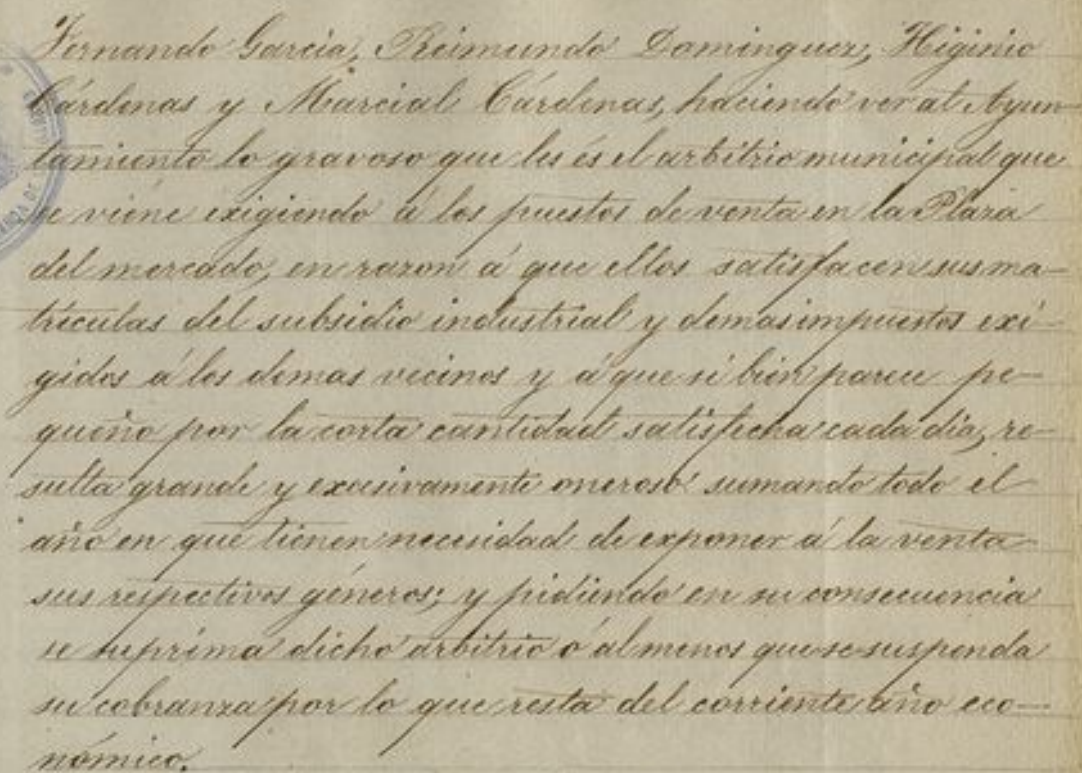 Fernando Garcia, Reimundo Dominguez, Higinio
Cárdenas y Marcial Cárdenas, haciendo ver al Ayun-
tamiento lo gravoso que les és el arbitrio municipal que
se viene exigiendo á los puestos de venta en la Plaza
del mercado, en razon á que ellos satisfacen sus ma-
triculas del subsidio industrial y demas impuestos exi-
gidos á los demas vecinos y á que si bien parece pe-
queño por la corta cantidad satisfecha cada dia, re-
sulta grande y excesivamente oneroso sumando todo el
año en que tienen necesidad de exponer á la venta
sus respectivos géneros; y pidiendo en su consecuencia
se suprima dicho arbitrio ó al menos que se suspenda
su cobranza por lo que resta del corriente año eco-
nómico.